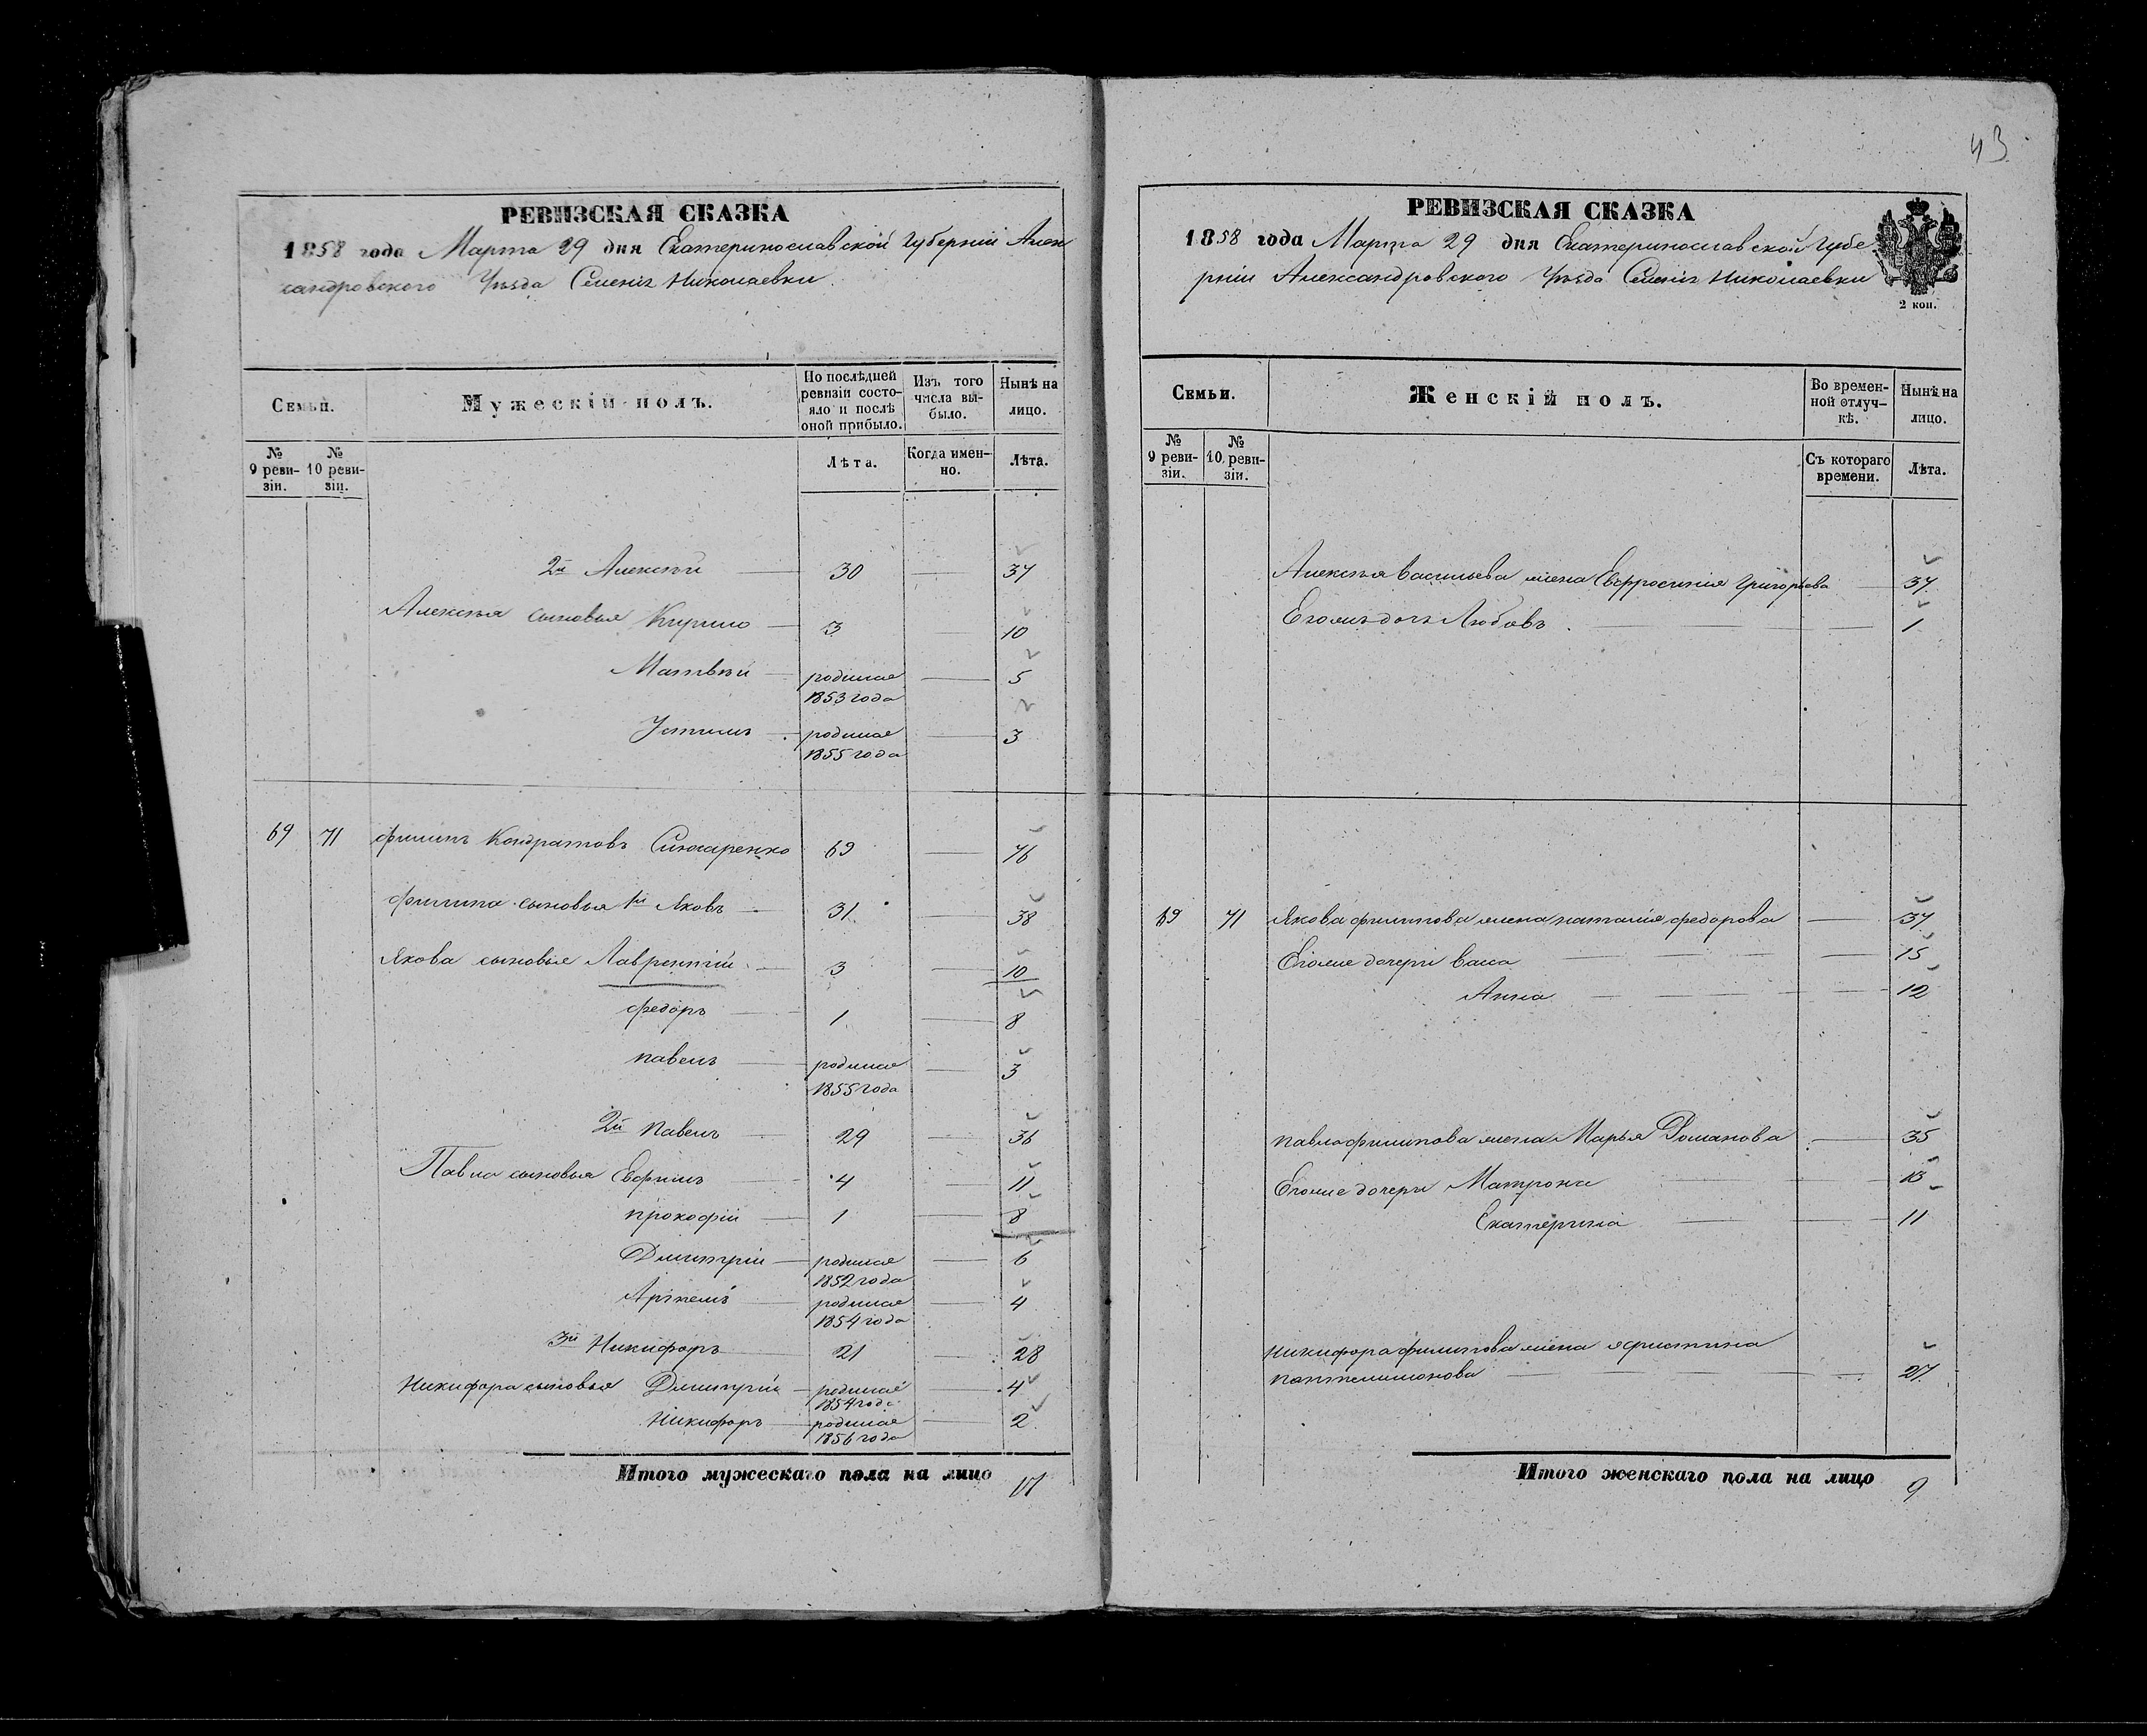 43
РЕВИЗСКАЯ СКАЗКА
1858 года Марта 29 дня Екатеринославской Губерніи Алек
сандровского Уѣзда Селенія Николаевки.
Семьи.
Мужескій полъ.
По послѣдней ревизіи состояло и послѣ оной прибыло.
Изъ того числа выбыло.
Нынѣ на лицо.
№ 9 ревизіи.
№ 10 ревизіи.
Лѣта.
Когда именно.
Лѣта.
2й Алексѣй 30 37
Алексѣя сыновья Кирило 3 10
Матвѣй родился 1853 года 5
Устимъ родился 1855 года 3
69 71 Филипъ Кондратовъ 69 76
Филипа сыновья 1й Яковъ 31 38
Якова сыновья Лаврентій 3 10
Федоръ 1 8
Павелъ родился 1855 года 3
2й Павелъ 29 36
Павла сыновья Евфимъ 4 11
Прокофій 1 8
Дмитрій родился 1852 года 6
Артемъ родился 1854 года 4
3й Никифоръ 21 28
Никифора сыновья Дмитрій родился 1854 года 4
Никифоръ родился 1856 года 2
Итого мужескаго пола на лицо
РЕВИЗСКАЯ СКАЗКА
1858 года Марта 29 дня Екатеринославской Губе
рніи Александровского Уѣзда Селенія Николаевки
2 коп.
Семьи.
Женскій полъ.
Во временной отлучкѣ.
Нынѣ на лицо.
№ 9 ревизіи.
№ 10 ревизіи.
Съ котораго времени.
Лѣта.
Алексѣя Васильева жена Евфросинія Григорьева 37
Его дочь Любовь 1
69 71 Якова Филипова жена Наталія Федорова 37
Его дочери Васса 15
Анна 12
Павла Филипова жена Марья Романова 35
Его дочери Матрона 13
Екатерина 11
Никифора Филипова жена
Пантелимонова 27
Итого женскаго пола на лицо 9